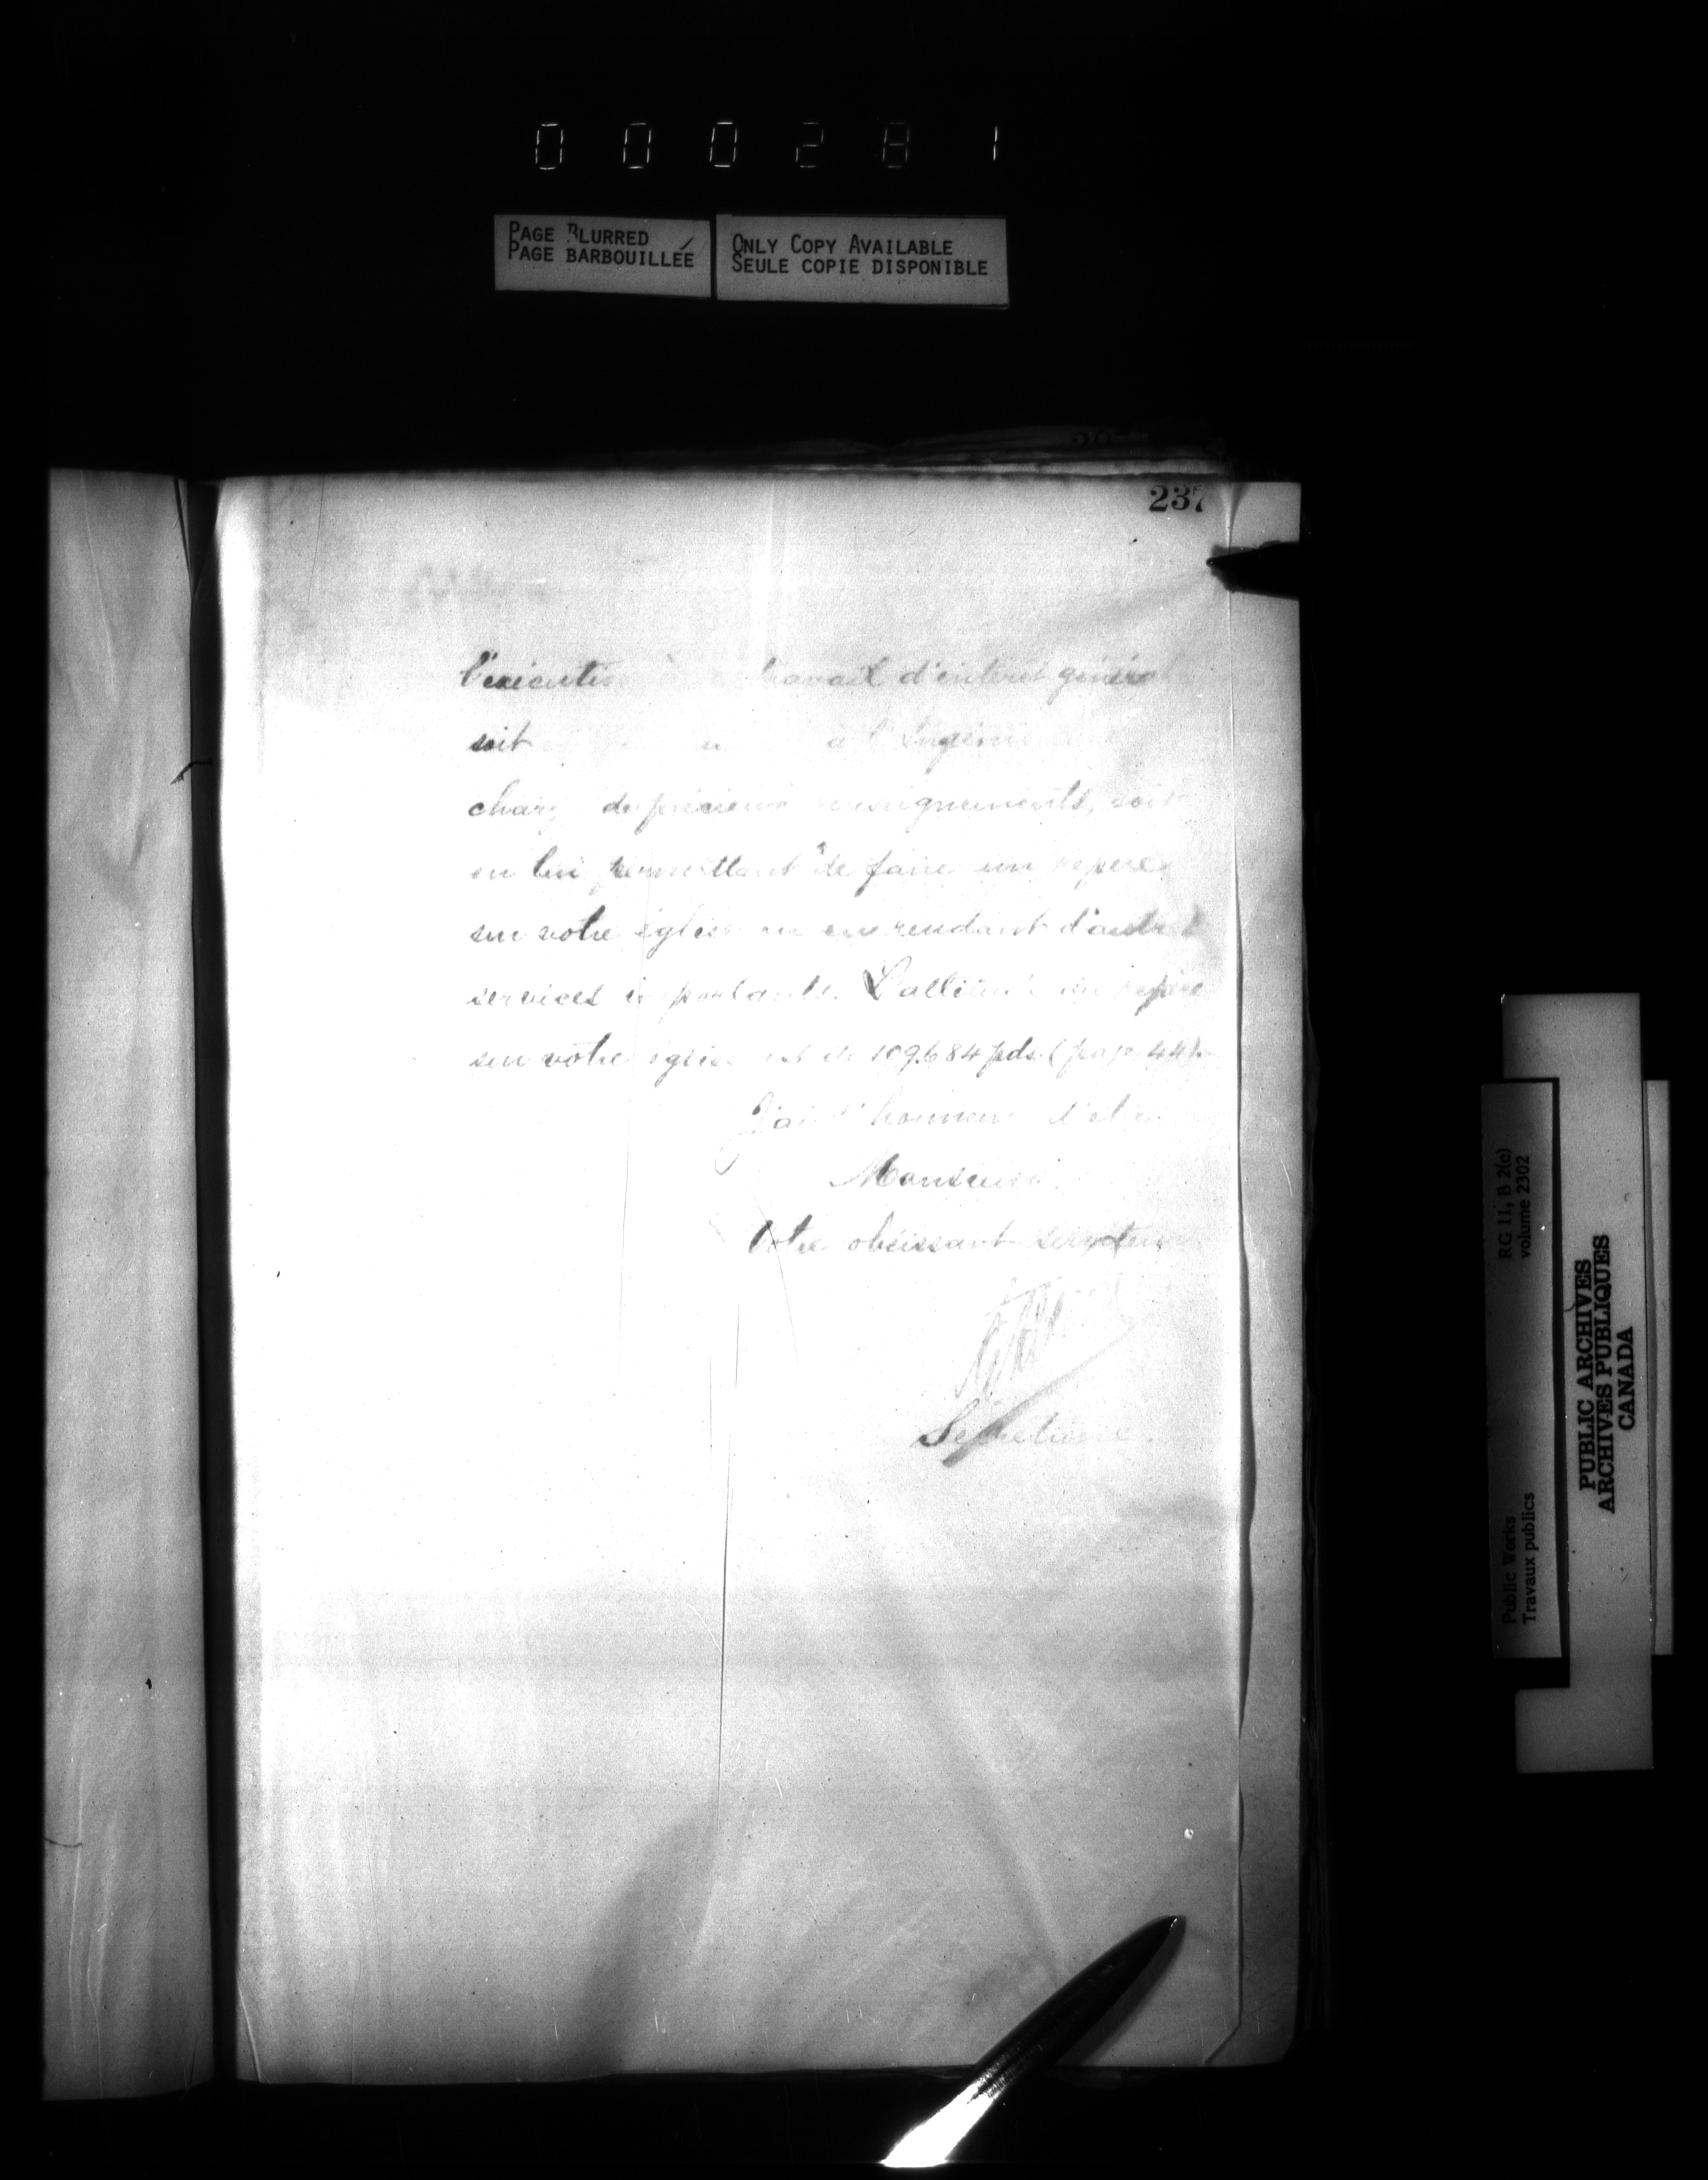 000281
PAGE BLURRED
PAGE BARBOUILLÉE
ONLY COPY AVAILABLE
SEULE COPIE DISPONIBLE
237
l'exécution travail d'intéret général
soit à l'Ingénieur
charg de précieux renseignements, soit
en lui permettant de faire un repere
sur votre église en rendant d'autres
services importants. L'altitude du repere
sur votre église est de 109.684 pds. (page 44).
J'ai l'honneur d'etre
Monsieur
Votre obéissant serviteur
Secretaire.
RG 11, B 2(c)
volume 2302
Public Works
Travaux publics
PUBLIC ARCHIVES
ARCHIVES PUBLIQUES
CANADA